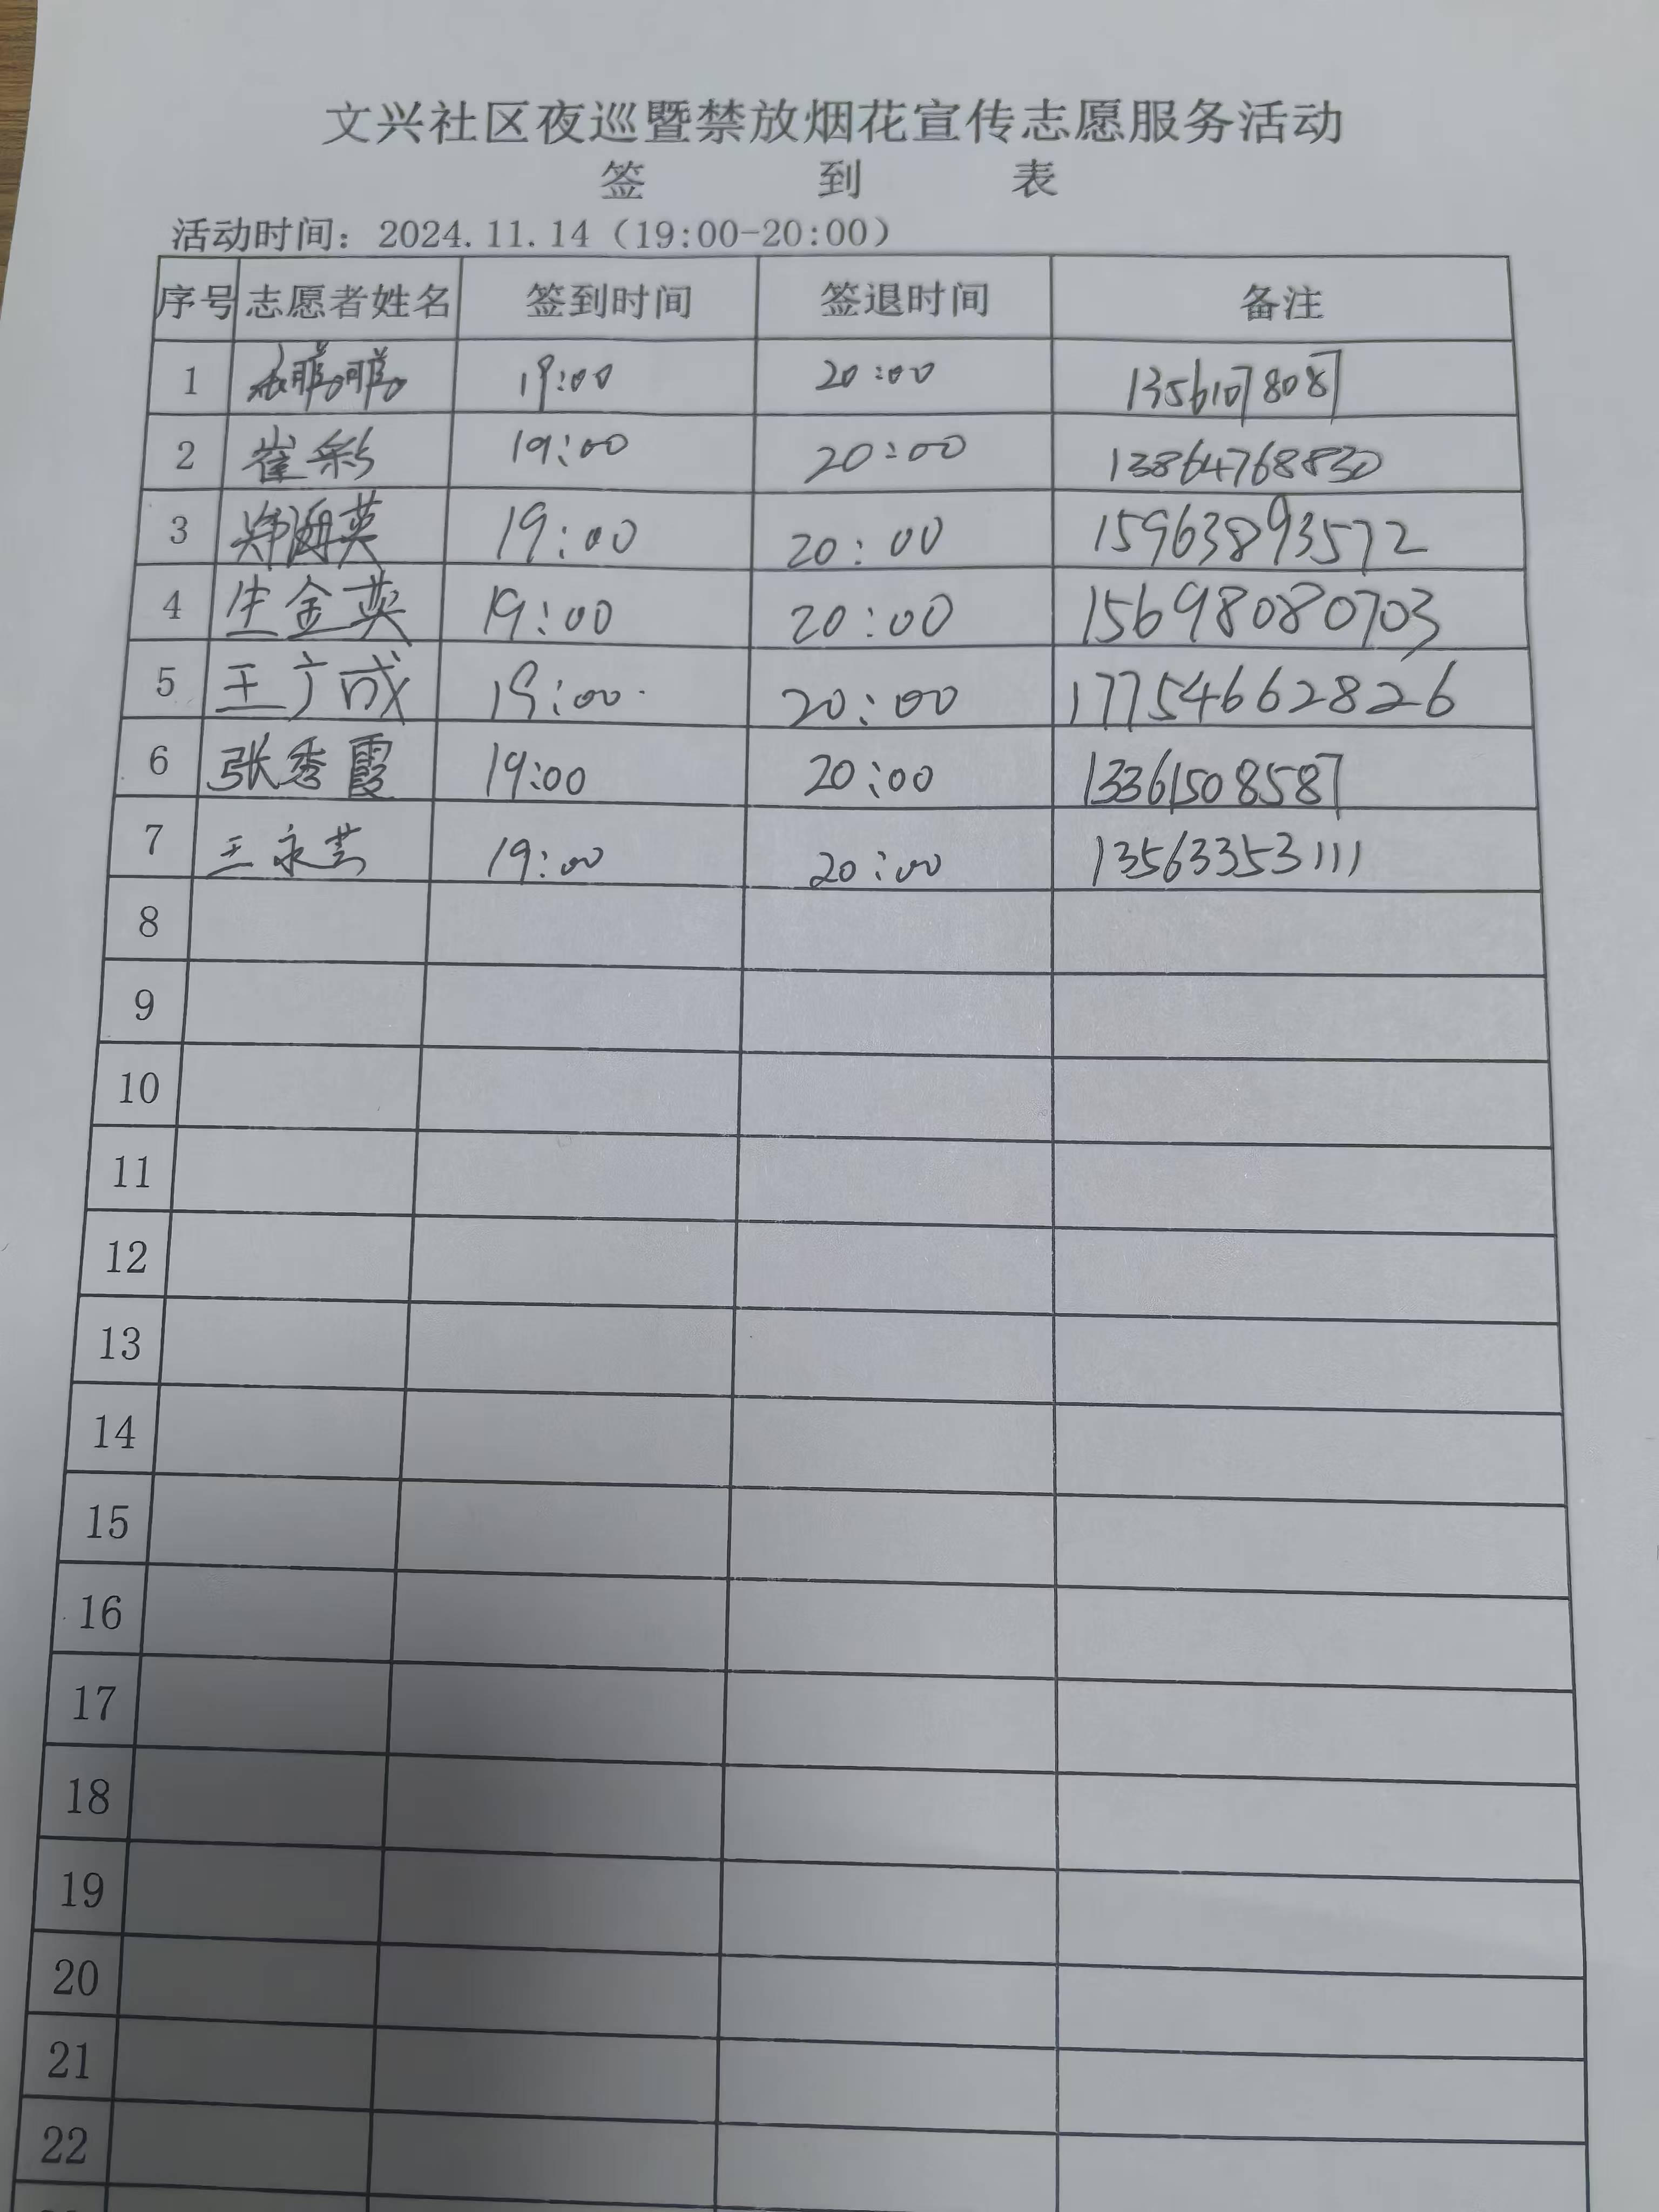 文兴社区夜巡暨禁放烟花宣传志愿服务活动
签 到 表
活动时间：2024.11.14（19:00-20:00）
序号 志愿者姓名 签到时间 签退时间 备注
1 鹏鹏 19:00 20:00 13561078087
2 崔彩 19:00 20:00 13864768830
3 郑海英 19:00 20:00 15963893572
4 生金英 19:00 20:00 15698080703
5 王广成 19:00 20:00 17754662826
6 张秀霞 19:00 20:00 13361508587
7 王永芸 19:00 20:00 13563353111
8
9
10
11
12
13
14
15
16
17
18
19
20
21
22